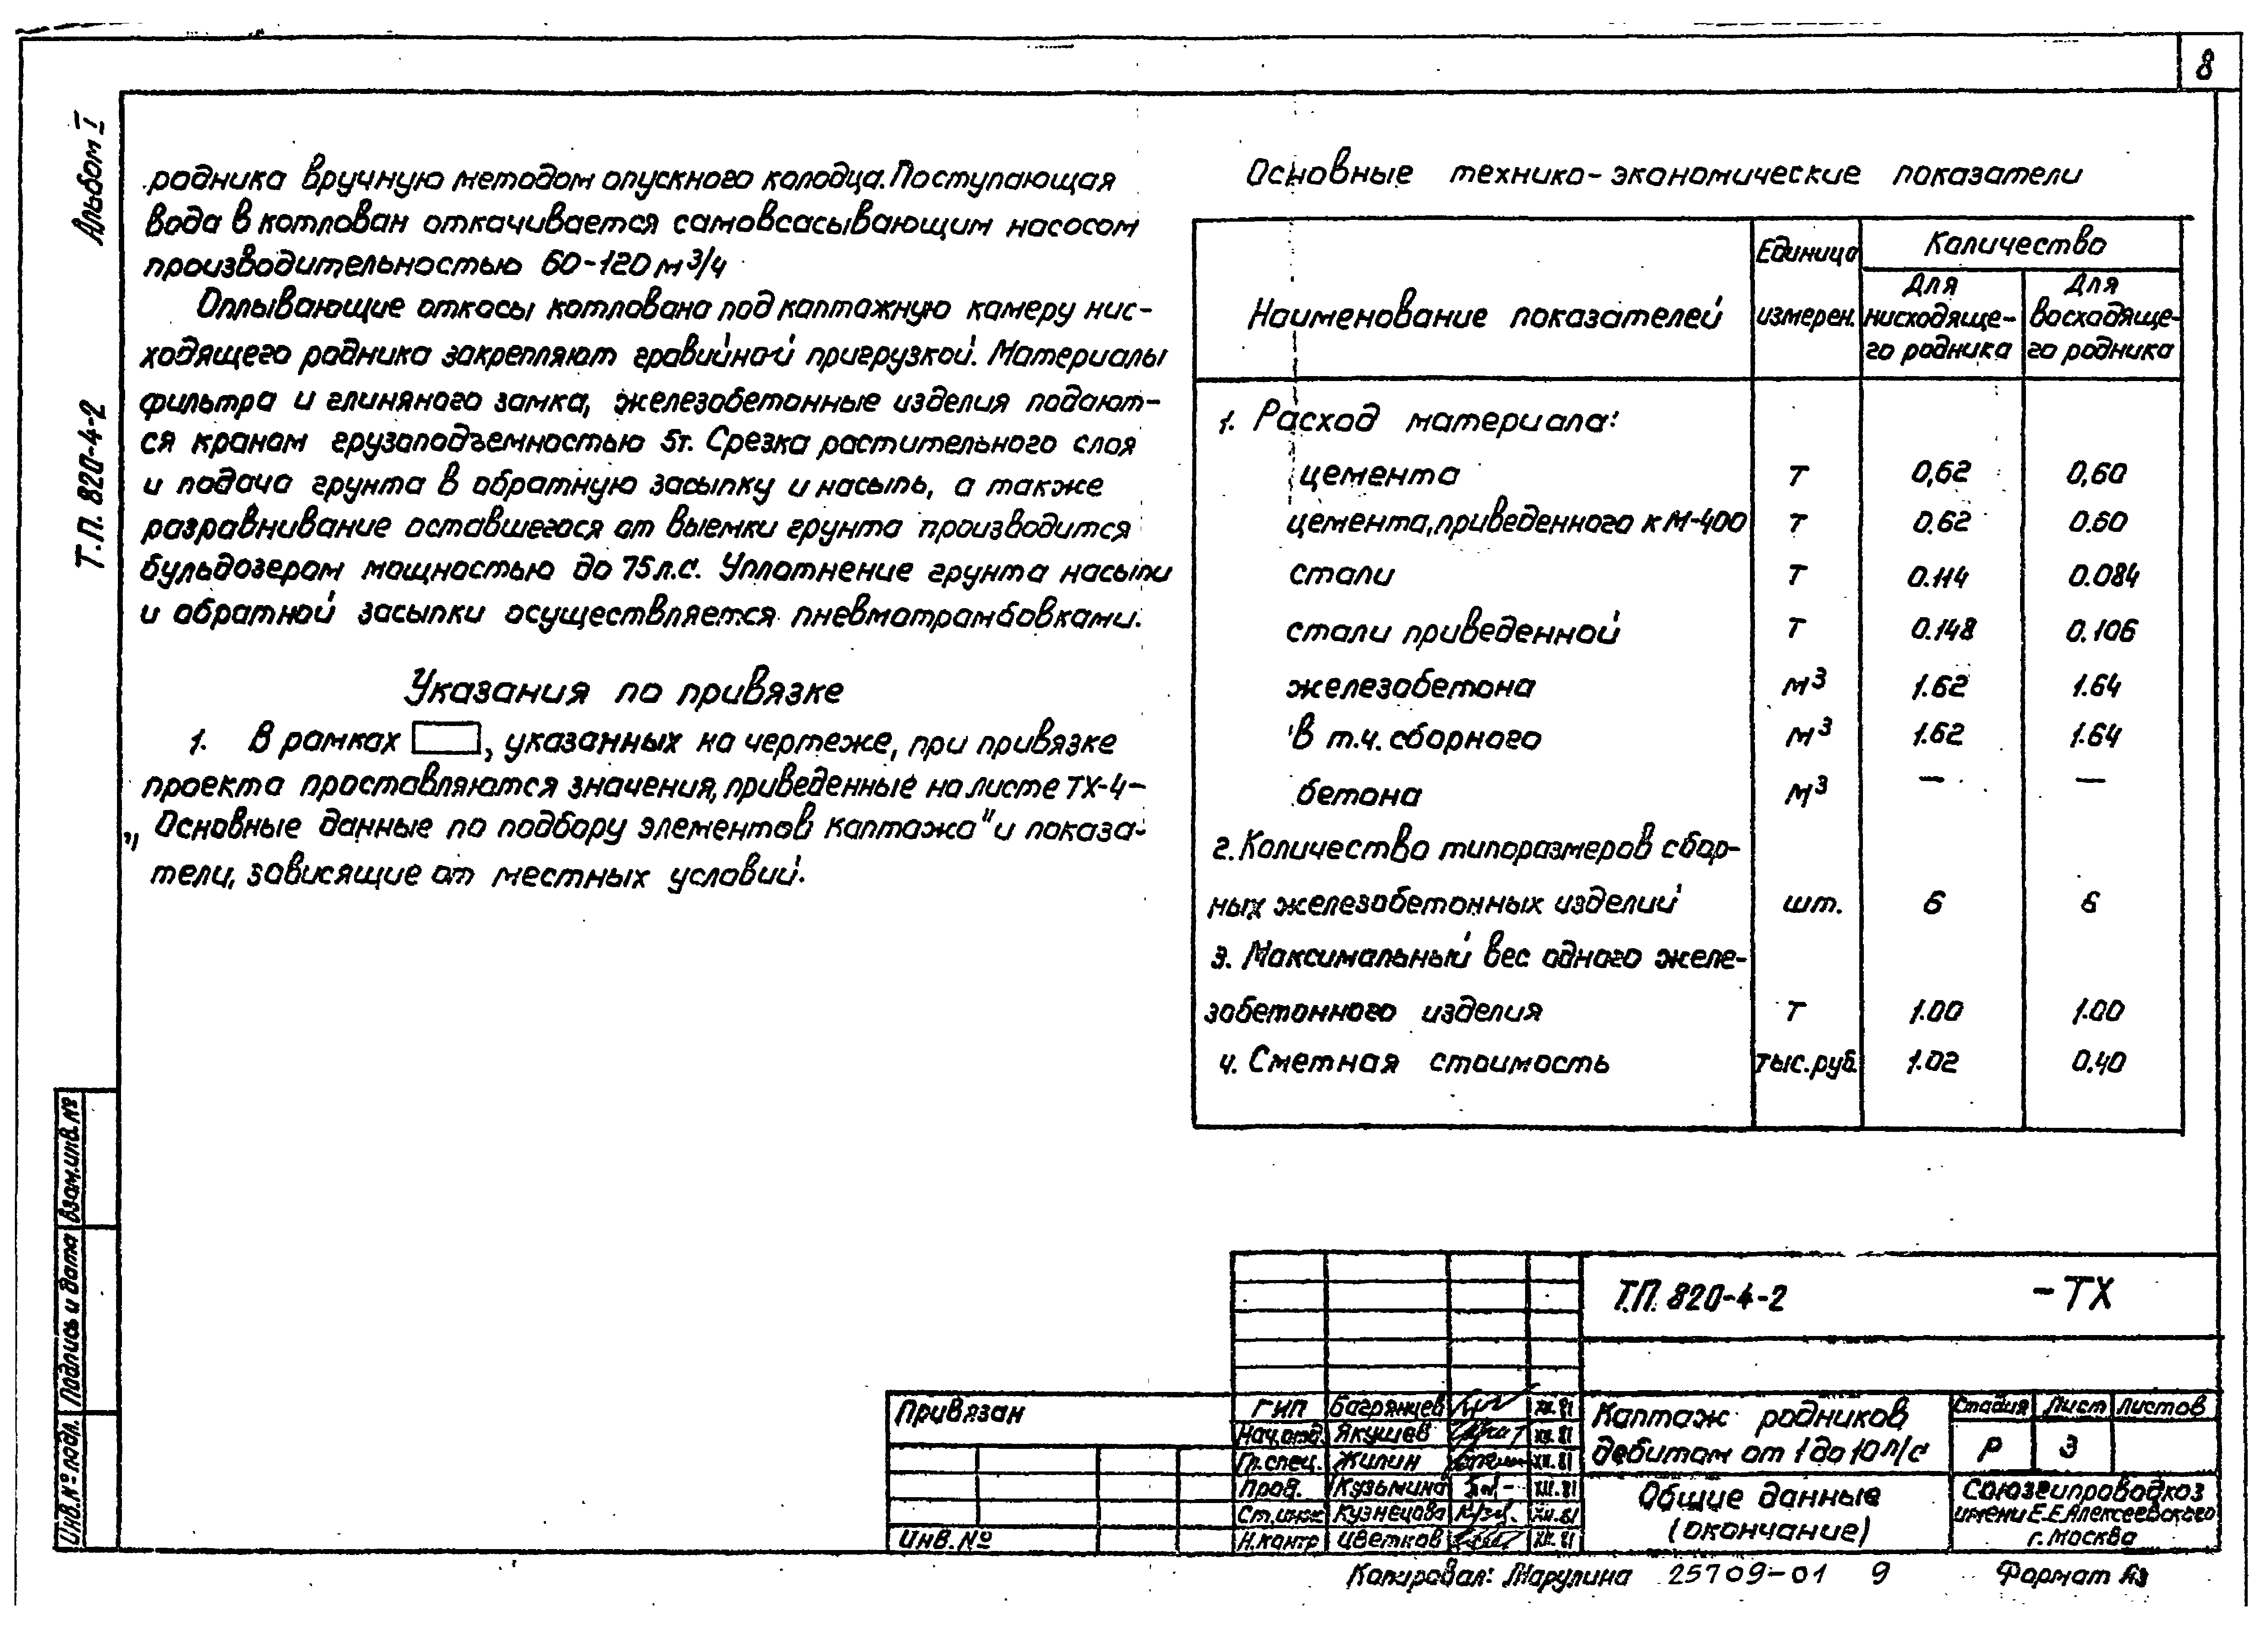 8
Альбом I
Т.П. 820-4-2
родника вручную методом опускного колодца. Поступающая
вода в котлован откачивается самовсасывающим насосом
производительностью 60-120 м³/ч
Оплывающие откосы котлована под каптажную камеру нис-
ходящего родника закрепляют гравийной пригрузкой. Материалы
фильтра и глиняного замка, железобетонные изделия подают-
ся краном грузоподъемностью 5т. Срезка растительного слоя
и подача грунта в обратную засыпку и насыпь, а также
разравнивание оставшегося от выемки грунта производится
бульдозером мощностью до 75 л.с. Уплотнение грунта насыпи
и обратной засыпки осуществляется пневмотрамбовками.
Указания по привязке
1. В рамках , указанных на чертеже, при привязке
проекта проставляются значения, приведенные на листе ТХ-4-
„Основные данные по подбору элементов каптажа" и показа-
тели, зависящие от местных условий.
Основные технико-экономические показатели
Наименование показателей
Единица
измерен.
Количество
Для
нисходяще-
го родника
Для
восходяще-
го родника
1. Расход материала:
цемента т 0,62 0,60
цемента, приведенного к М-400 т 0.62 0.60
стали т 0.114 0.084
стали приведенной т 0.148 0.106
железобетона м³ 1.62 1.64
в т.ч. сборного м³ 1.62 1.64
бетона м³ — —
2. Количество типоразмеров сбор-
ных железобетонных изделий шт. 6 6
3. Максимальный вес одного желе-
зобетонного изделия т 1.00 1.00
4. Сметная стоимость тыс.руб. 1.02 0.40
Взам.инв.№
Подпись и дата
Инв.№ подл.
Т.П. 820-4-2 -ТХ
Привязан
Инв.№
ГИП Багрянцев XII.81
Нач.отд. Якушев XII.81
Гл.спец. Жилин XII.81
Пров. Кузьмина XII.81
Ст.инж Кузнецова XII.81
Н.контр Цветков XII.81
Каптаж родников
дебитом от 1 до 10 л/с
Стадия Лист Листов
Р 3
Общие данные
(окончание)
Союзгипроводхоз
имени Е.Е.Алексеевского
г.Москва
Копировал: Марулина 25709-01 9 Формат А3